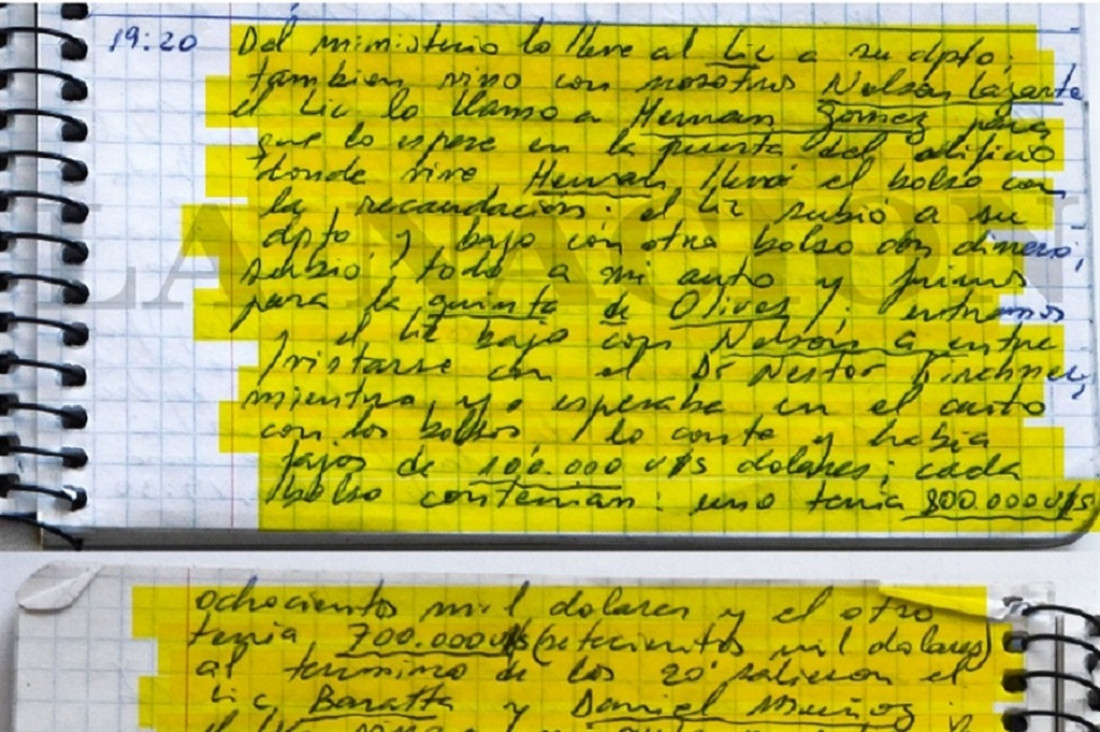 19:20 Del ministerio lo lleve al Lic a su dpto;
tambien vino con nosotros Nelson Lazarte
el Lic lo llamo a Hernan Gomez para
que lo espere en la puerta del edificio
donde vive Hernan llevó el bolso con
la recaudacion. el Lic subió a su
dpto y bajo con otro bolso con dinero,
subió todo a mi auto y fuimos
para la quinta de Olivos; entramos
y el Lic bajo con Nelson a entre
vistarse con el Dr Nestor Kirchner,
mientras yo esperaba en el auto
con los bolsos, lo conte y habia
fajos de 100.000 u/s dolares; cada
bolso contenian: uno tenia 800.000 u/s
ochocientos mil dolares y el otro
tenia 700.000 u/s (setecientos mil dolares)
al termino de los 20' salieron el
Lic, Baratta y Daniel Muñoz y
LA NACION